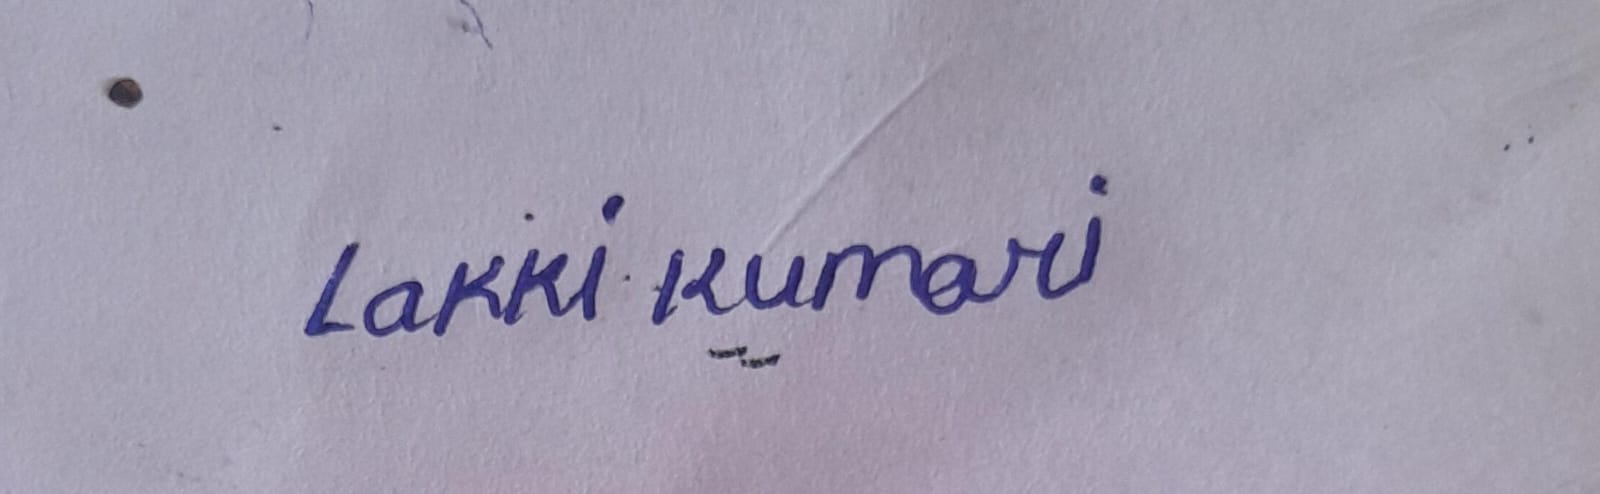 Lakki kumari